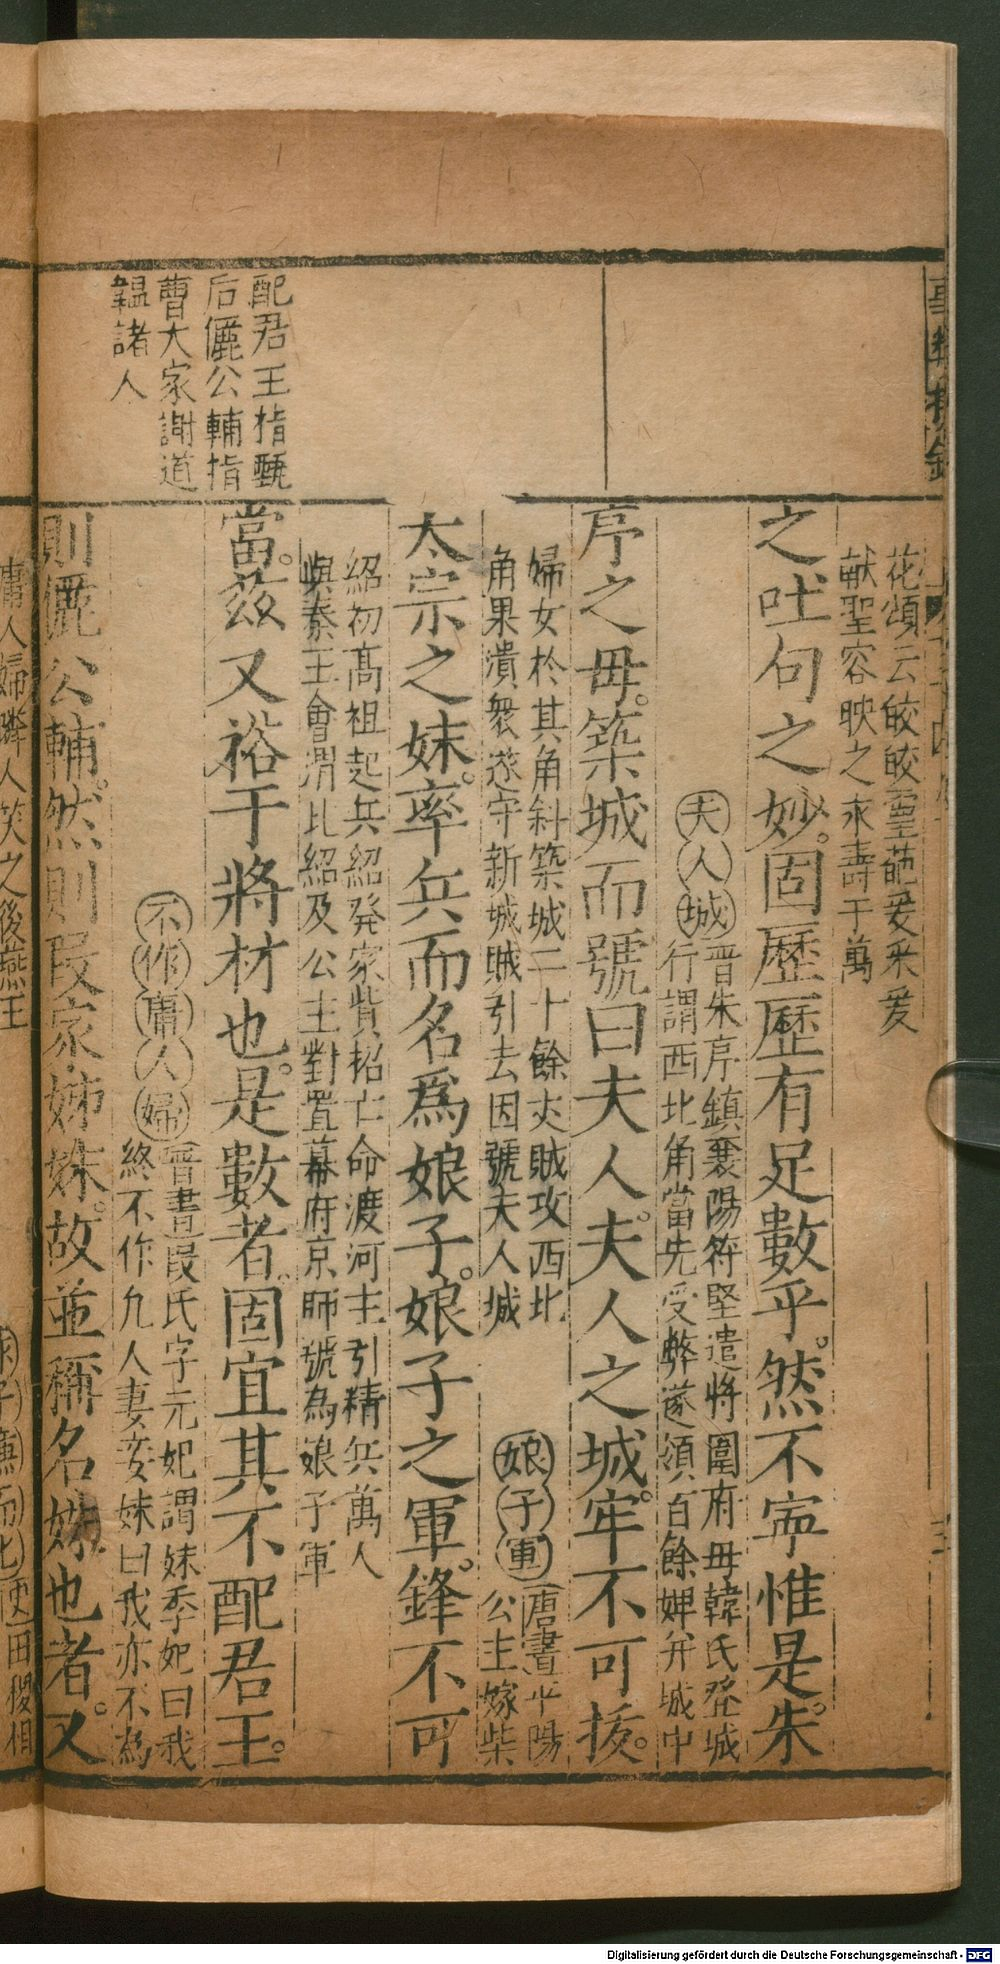 花頌云皎皎靈葩爰采爰
献聖容映之永壽于萬
之吐句之妙。固歷歷有足數乎。然不寧惟是。朱
夫人城晋朱序鎮襄陽符堅遣將圍府母韓氏登城
行謂西北角當先受弊遂領百餘婢并城中
序之母。築城而號曰夫人。夫人之城。牢不可拔。
婦女於其角斜築城二十餘丈賊攻西北
角果潰衆遂守新城賊引去因號夫人城
娘子軍唐書平陽
公主嫁柴
太宗之妹。率兵而名爲娘子。娘子之軍。鋒不可
紹初高祖起兵紹発家貲招亡命渡河主引精兵萬人
與秦王會渭北紹及公主對置幕府京師號為娘子軍
當。兹又裕于將材也。是數者。固宜其不配君王。
配君王指甄
后儷公輔指
曹大家謝道
韞諸人
不作庸人婦晋書叚氏字元妃謂妹季妃曰我
終不作凢人妻妾妹曰我亦不為
則儷公輔。然則叚家姊妹。故並稱名媛也者。又
庸人婦隣人笑之後燕王
史田稷相
Digitalisierung gefördert durch die Deutsche Forschungsgemeinschaft - DFG